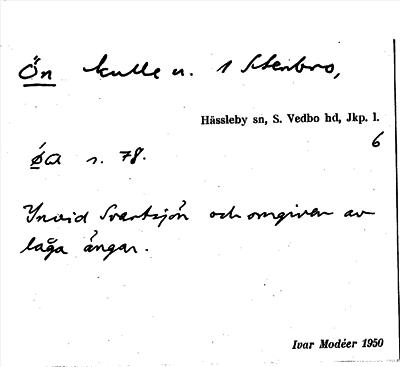 Ön kulle n. 1 Stenbro,
Hässleby sn, S. Vedbo hd, Jkp. l.
6
øa s. 78.
Invid Svartsjön och omgiven av
låga ängar.
Ivar Modéer 1950